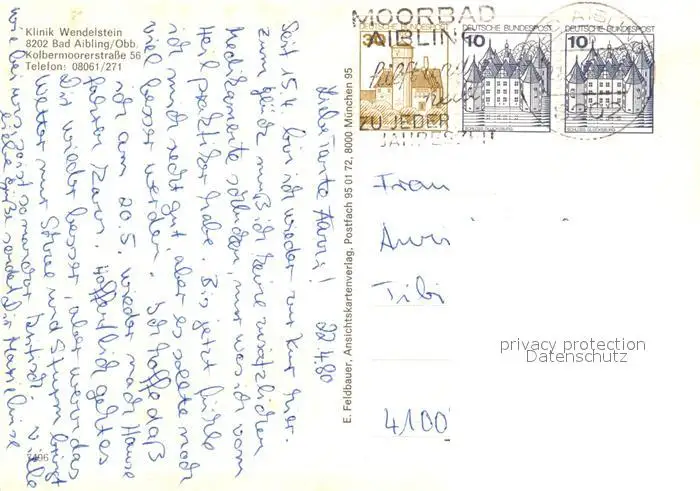 Klinik Wendelstein
8202 Bad Aibling/Obb.
Kolbermoorerstraße 56
Telefon: 08061/271
MOORBAD
AIBLING
hilft
ZU JEDER
JAHRESZEIT
DEUTSCHE BUNDESPOST
30
DEUTSCHE BUNDESPOST
10
SCHLOSS GLÜCKSBURG
DEUTSCHE BUNDESPOST
10
SCHLOSS GLÜCKSBURG
8202
22.4.80
Liebe Tante Anni!
Seit 15.4. bin ich wieder zur Kur hier.
Zum Glück muß ich keine zusätzlichen
Medikamente schlucken, nur was ich vom
Heilpraktiker habe. Bis jetzt fühle
ich mich recht gut, aber es sollte noch
viel besser werden. Ich hoffe daß
ich am 20.5. wieder nach Hause
fahren kann. Hoffentlich geht es
Dir wieder besser, aber wenn das
Wetter nur Schnee und Sturm bringt
wie bei uns zeigt so mancher kritisch. Viele
liebe Grüße sendet Dir
7496
E. Feldbauer, Ansichtskartenverlag, Postfach 95 01 72, 8000 München 95
Frau
Anni
Tibi
4100
privacy protection
Datenschutz